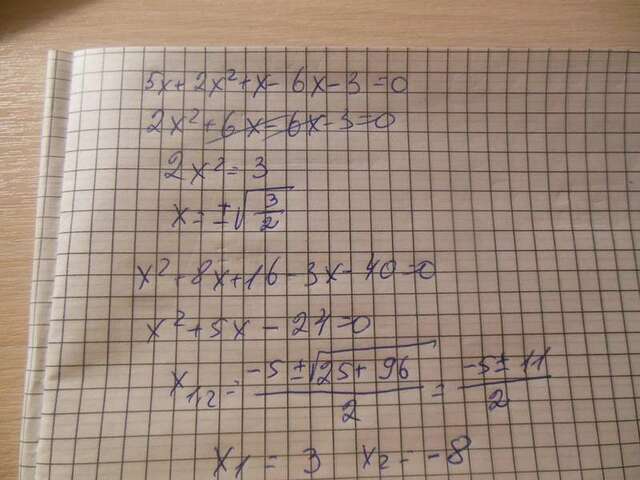 5x + 2x² + x - 6x - 3 = 0
2x² + 6x - 6x - 3 = 0
2x² = 3
x = ±√(3/2)
x² + 8x + 16 - 3x - 40 = 0
x² + 5x - 24 = 0
x₁,₂ = (-5 ± √(25 + 96))/2 = (-5 ± 11)/2
x₁ = 3 x₂ = -8